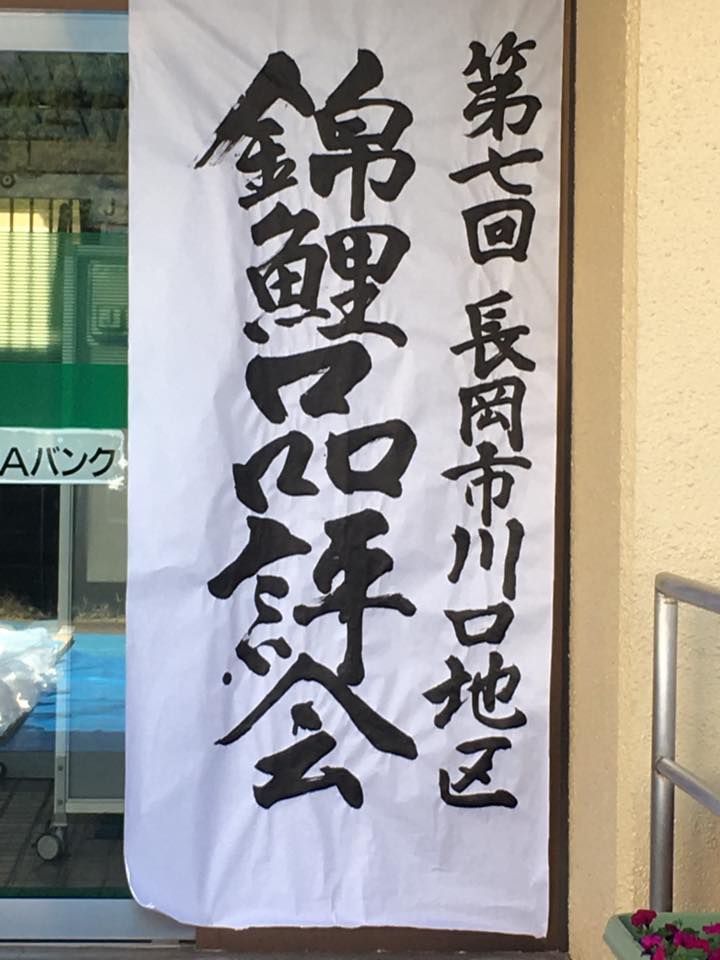 第七回 長岡市川口地区
錦鯉品評会
Aバンク